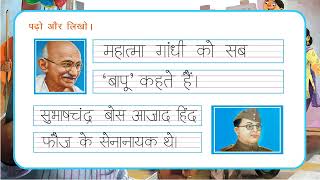 पढ़ो और लिखो।
महात्मा गांधी को सब
‘बापू’ कहते हैं।
सुभाषचंद्र बोस आजाद हिंद
फौज के सेनानायक थे।